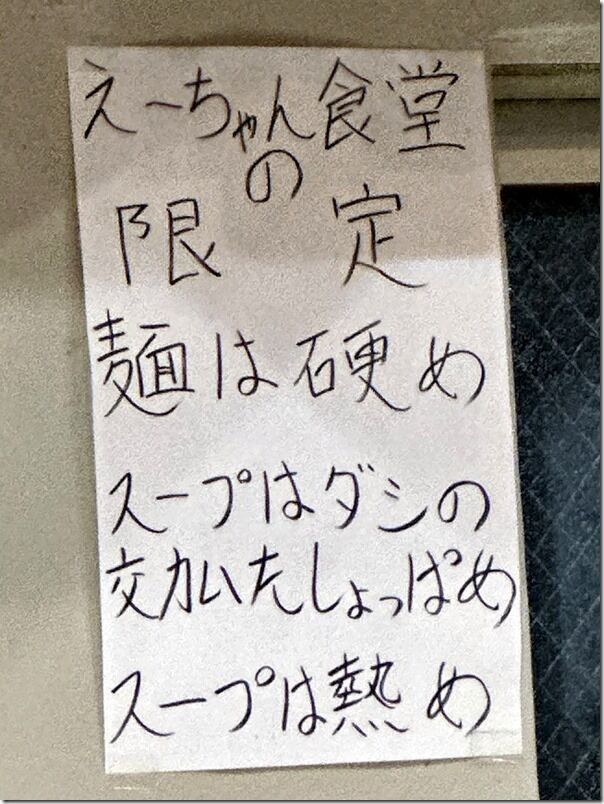 えーちゃん食堂
の
限定
麺は硬め
スープはダシの
交カ厶たしょっぱめ
スープは熱め